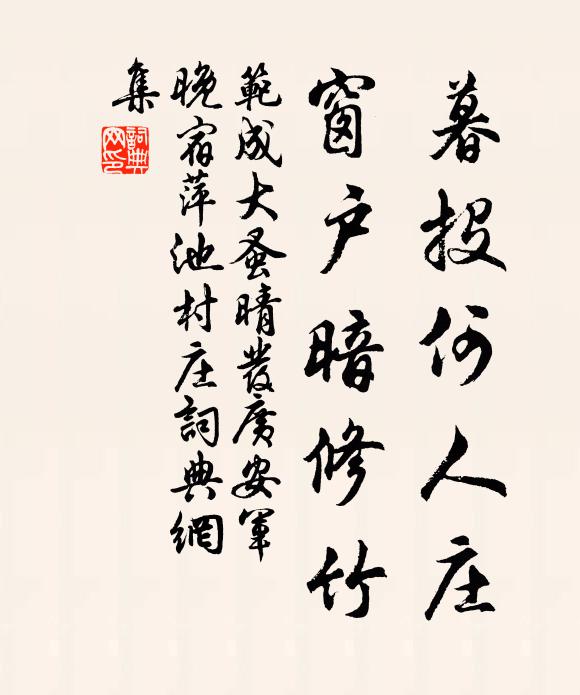 暮投何人庄
窗户暗修竹
範成大蚤晴發廣安軍
晚宿萍池村庄詞典網
集
詞典網印